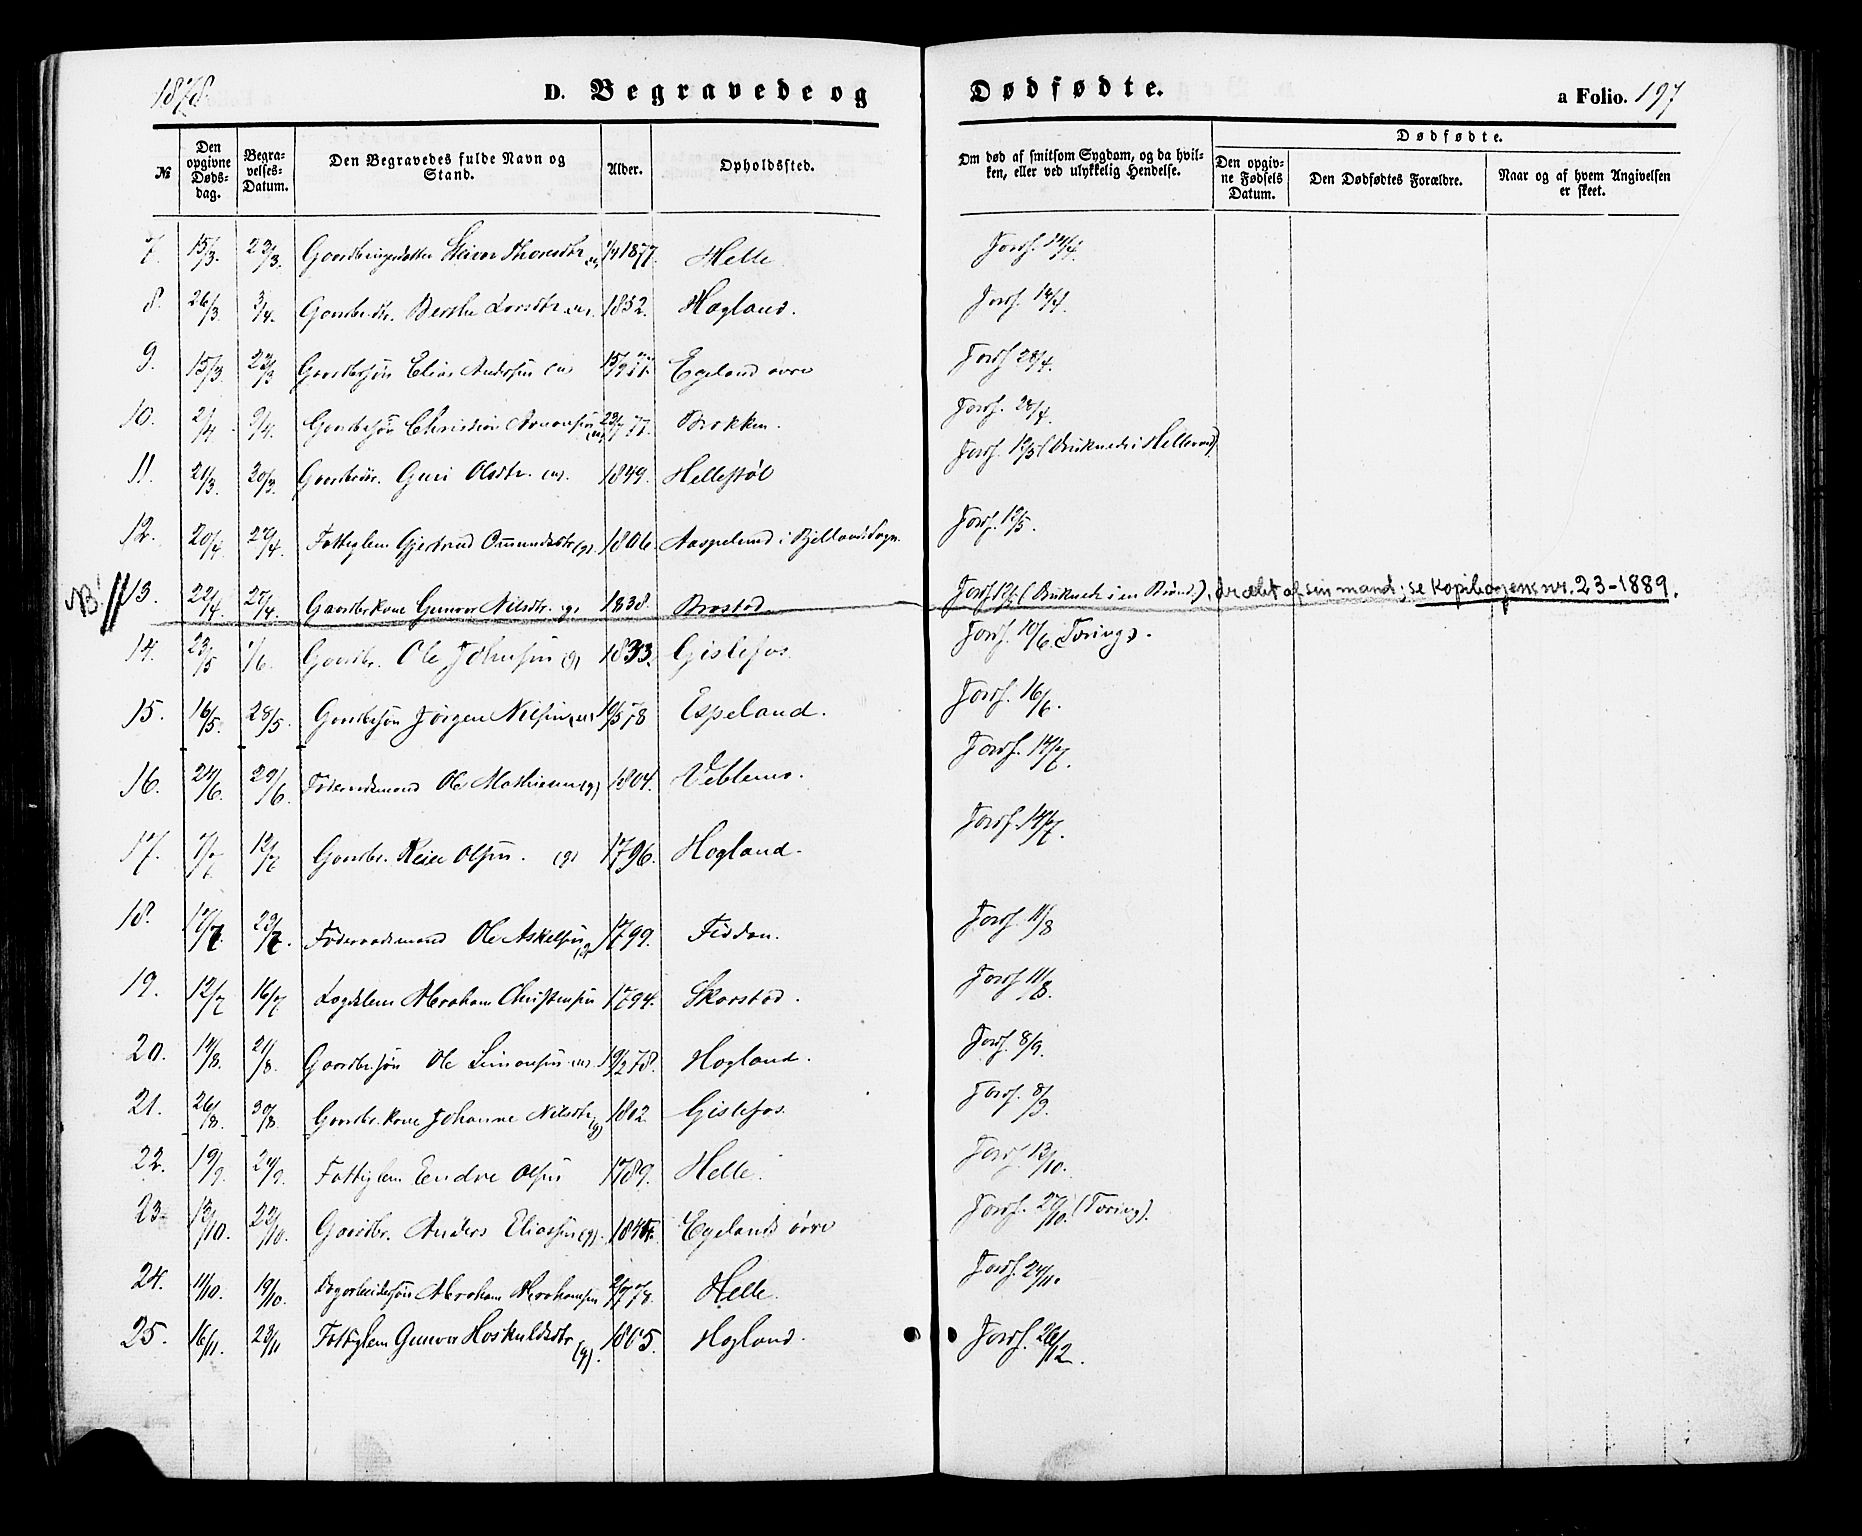 1878.
D. Begravede og Dødfødte.
a Folio. 197
Dødfødte.
№ Den opgivne Døds-dag. Begra-velses-Datum. Den Begravedes fulde Navn og Stand. Alder. Opholdssted. Om død af smitsom Sygdom, og da hvil-ken, eller ved ulykkelig Hendelse. Den opgiv-ne Fødsels Datum. Den Dødfødtes Forældre. Naar og af hvem Angivelsen er skeet.
7. 15/3. 23/3. 1877. Helle. Jordf. 14/4.
8. 26/3 3/4. Gaardbr.dtr. Berthe Larsdtr. 1852. Hagland. Jordf. 14/4.
9. 15/3. 23/3 Gaardbrsøn Elias Andersen Egeland øvre Jordf 28/4.
10. 2/4 9/4. Gaardbrsøn Christian Brokken. Jordf. 28/4.
11. 21/3. 30/3. Guri Olsdtr. 1849. Hellestøl Jordf. 12/5 (Druknede i Hellevand)
12. 20/4. 27/4. Fattiglem Gjertrud Omundsdtr (g) 1806. Aaspelund i Bjellands Sogn. Jordf. 12/5.
NB! 13. 22/4. 27/4. Gaardbrkone Gunvor Nilsdtr. (g) 1838. Brostad Jordf 12/5 (Druknede i en Brønd.), dræbt af sin mand; se kopibogens nr. 23-1889.
14. 23/5 1/6. Gaardbr. Ole Johnsen (g) 1833. Gislefos. Jordf. 10/6. (Tæring).
15. 16/5. 28/5. Gaardbrsøn Jørgen Nilsen 16/5 78 Espeland. Jordf. 16/6.
16. 24/6. 29/6. Føderaadsmand Ole Mathiesen (g) 1804. Veblemo. Jordf. 14/7.
17. 7/7 12/7 Gaardbr. Reier Olsen. (g) 1796. Hogland. Jordf. 14/7.
18. 17/7. 23/7. Føderaadsmand Ole Askelsen (g) 1799. Fiddan. Jordf. 11/8
19. 12/7 16/7. Lægdslem Abraham Christensen 1794. Skarstad. Jordf 11/8.
20. 14/8. 21/8. Gaardbr.søn Ole Simonsen 19/2 78. Hogland. Jordf. 8/9.
21. 26/8. 30/8. Gaardbr.kone Johanne Nilsdtr. (g) 1802. Gislefos. Jordf. 8/9.
22. 19/9. 24/9. Fattiglem Endre Olsen 1789. Helle. Jordf. 13/10.
23. 13/10. 22/10. Gaardbr. Anders Eliassen (g). Egelands øvre Jordf. 27/10. (Tæring).
24. 11/10. 19/10. Dagarbeidersøn Abraham Abrahamsen Helle. Jordf. 24/11.
25. 16/11. 23/11 Fattiglem Gunvor Hoskuldsdtr (g). 1805. Hogland. Jordf. 26/12.